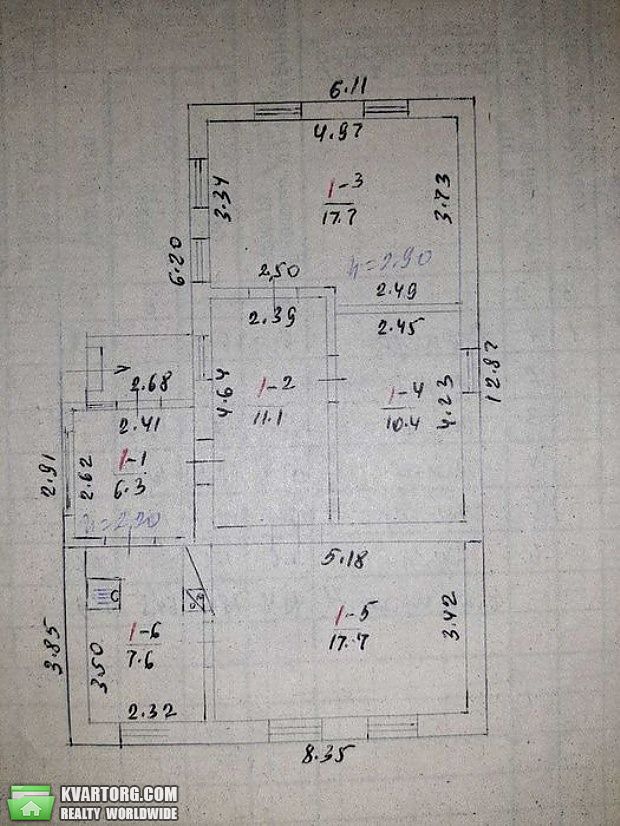 6.11
4.97
3.34
1-3
17.7
3.73
6.20
h=2.90
2,50
2.49
2.39
2.45
12.87
2.68
4.64
1-2
11.1
1-4
10.4
4.23
2.41
1-1
6.3
2.62
2.91
h=2,20
5.18
1-5
17.7
3.42
1-6
7.6
3.50
3.85
2.32
8.35
KVARTORG.COM
REALTY WORLDWIDE